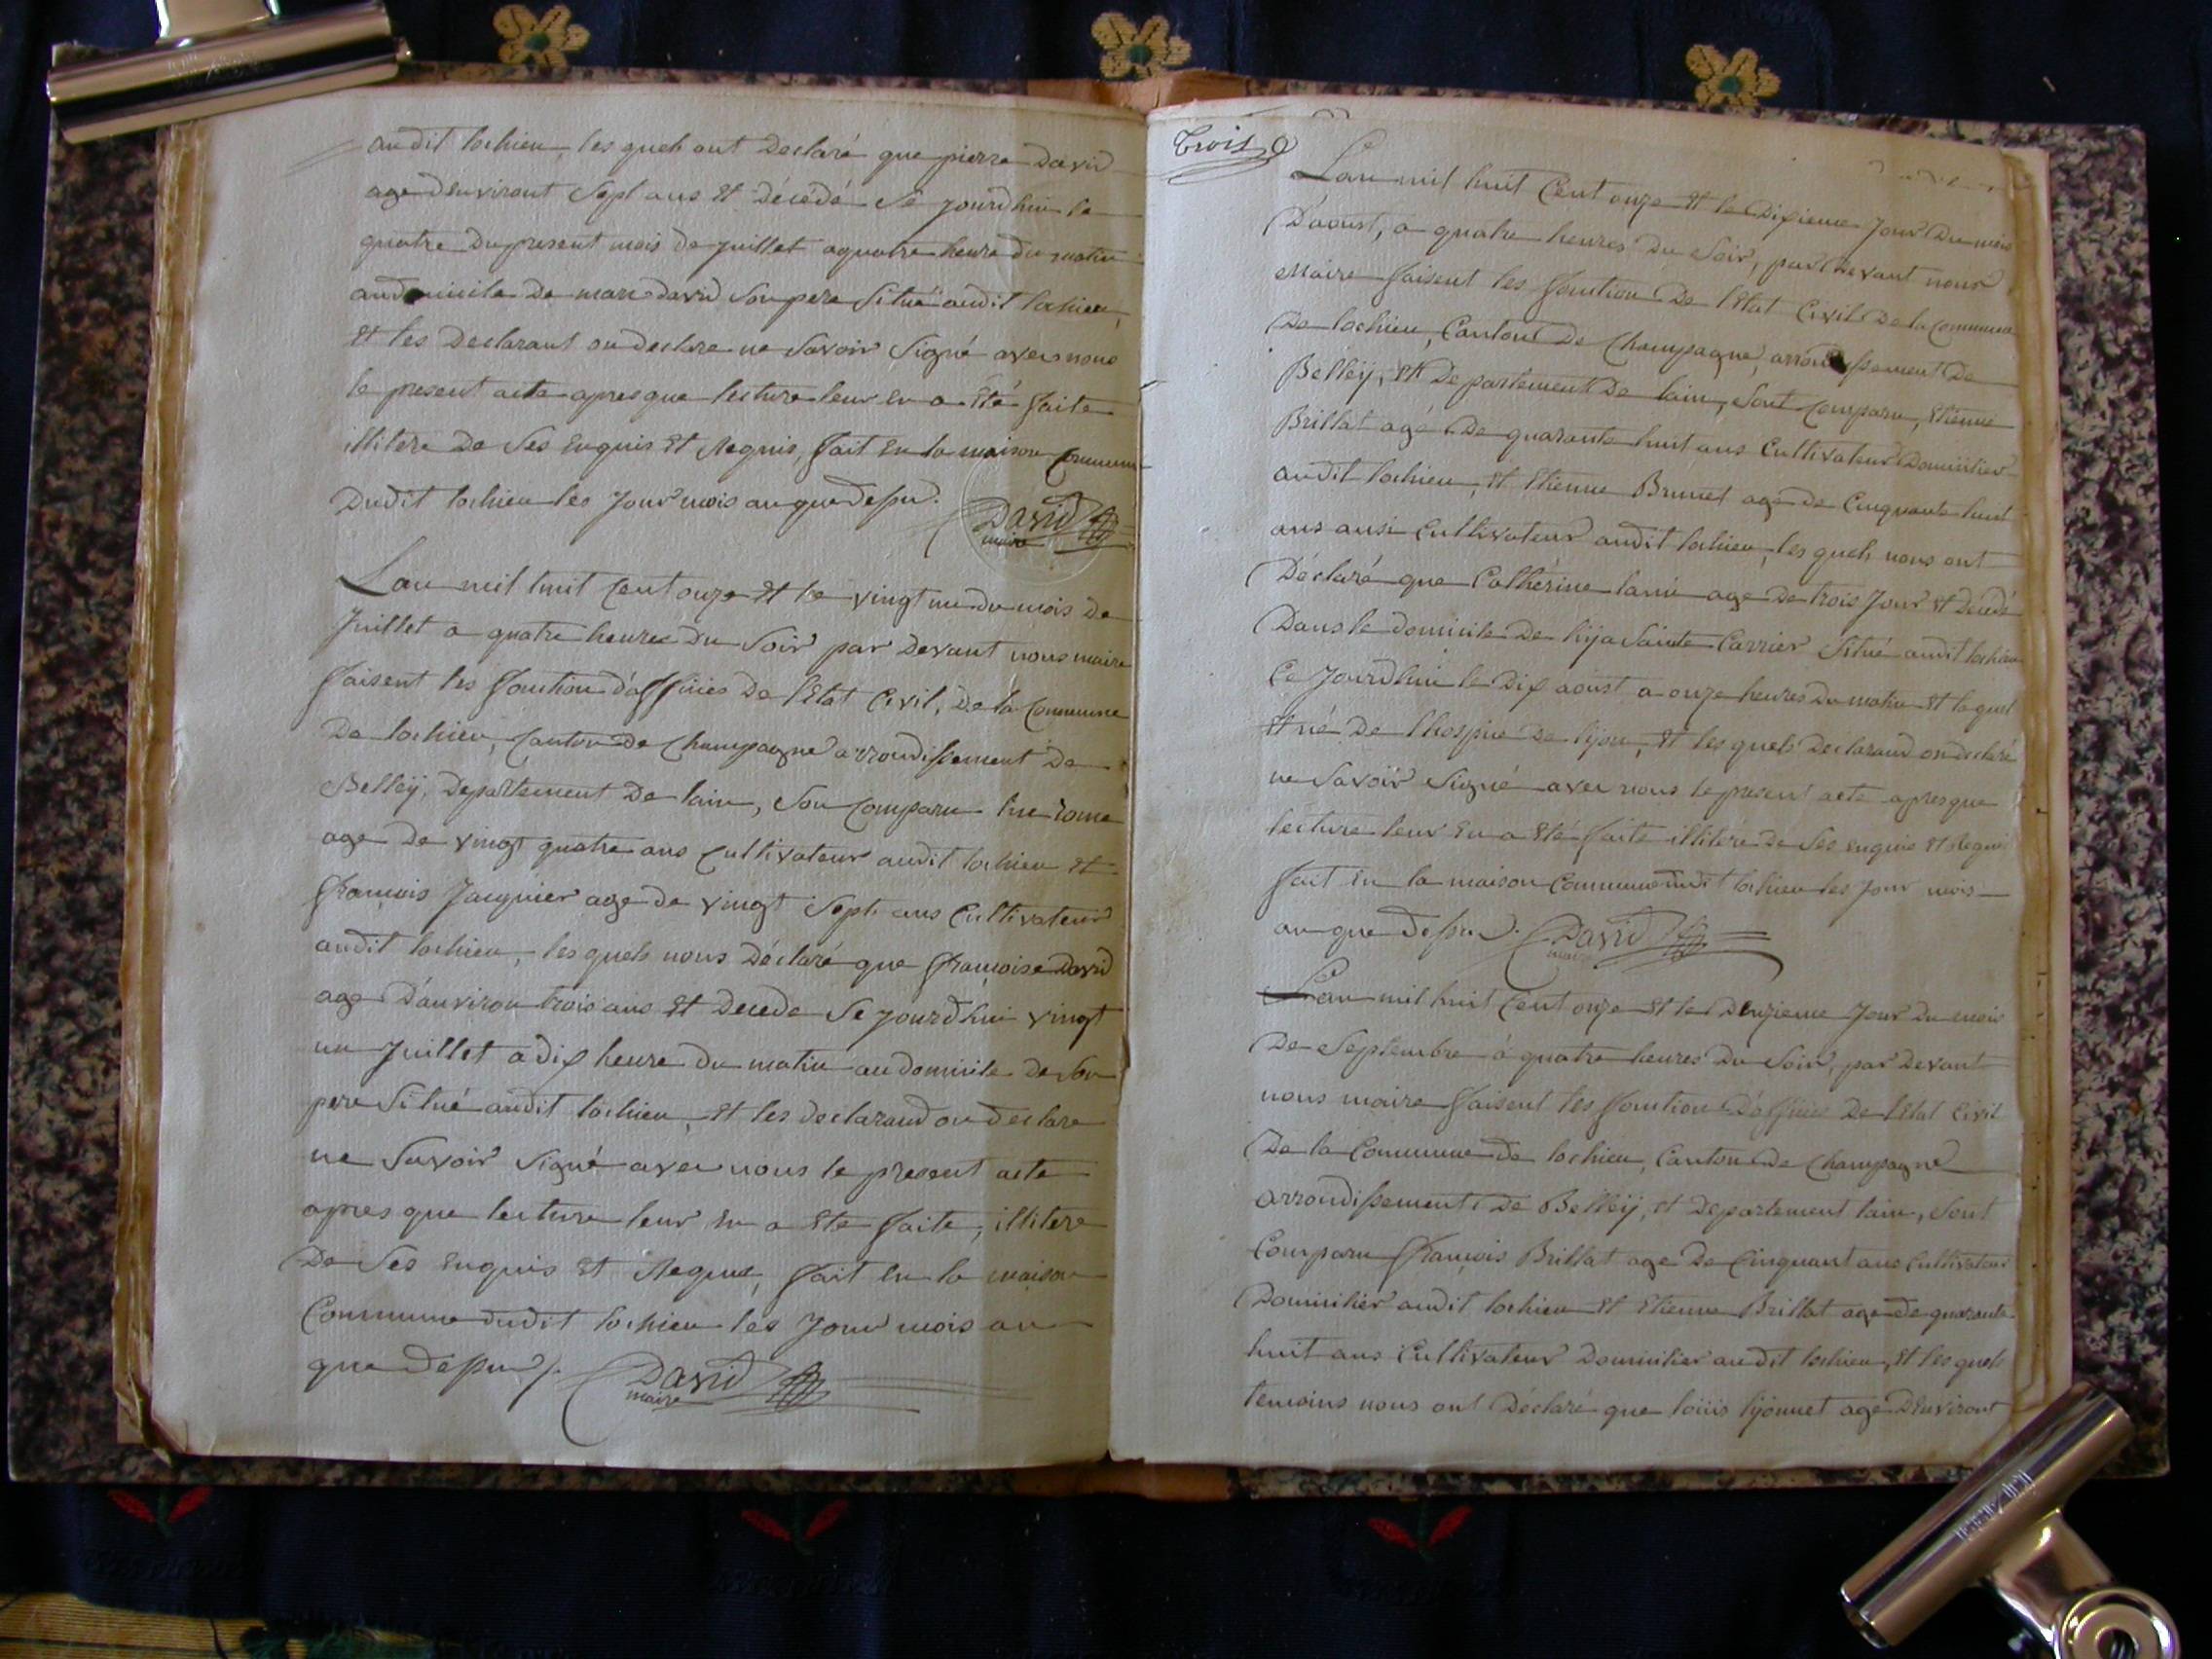 audit lochieu, les quels ont Declaré que pierre David
age d'environt Sept ans Et Décédé Se jourdhui le
quatre du present mois de juillet aquatre heure du matin
audomicile De marc David Son pere Situé audit lochieu,
Et les Declarant on declare ne Savoir Signé avec nous
le present acte apres que lecture leur En a Eté faite
illitere De Ses Enquis Et Requis, fait En la maison Commune
Dudit lochieu les Jour mois an que depu.
David
maire
Lan mil huit Cent onze Et le vingt un du mois de
Juillet a quatre heures du Soir par Devant nous maire
faisent les fonction d'officies De l'Etat Civil, De la Commune
De lochieu, Canton de Champagne arrondissement De
Belleÿ, Departement De lain, Son Comparu
age De vingt quatre ans Cultivateur audit lochieu Et
françois Jacquier age de vingt Sept ans Cultivateur
audit lochieu, les quels nous Déclaré que françoise David
age D'anviron trois ans Et Decede Se jourdhui vingt
un Juillet a dix heure du matin au domicile de Son
pere Situé audit lochieu, Et les declarand on declare
ne Savoir Signé avec nous le present acte
apres que lecture leur En a Ete faite, illitere
De Ses Enquis Et Requis, fait En la maison
Commune dudit lochieu les Jour mois an
que depu.
David
maire
Trois
Lan mil huit Cent onze Et le Dixieme Jour Du mois
D'aoust, a quatre heures Du Soir, par Devant nous
Maire faisent les fonction De l'Etat Civil De la Commune
De lochieu, Canton De Champagne, arrondissement De
Belleÿ, Et Departement De lain, Sont Comparu, Etienne
Brillat agé De quarante huit ans Cultivateur Domicilier
audit lochieu, Et Etienne Brunet age de Cinquante huit
ans ausi Cultivateur audit lochieu, les quels nous ont
Déclaré que Catherine age De trois Jour Et Décédé
Dans le domicile De Carrier Situé audit lochieu
Ce Jourdhui le Dix aoust a onze heures Du matin Et laquel
Et né De lhospice De lijon, Et les quels Declarand on declaré
ne Savoir Signé avec nous le present acte apres que
lecture leur En a Eté faite illitére de Ses Enquis Et Requis
fait En la maison Commune dudit lochieu les Jour mois
an que depu.
David
maire
Lan mil huit Cent onze Et le Deuzieme Jour Du mois
De Septembre a quatre heures Du Soir, par Devant
nous maire faisent les fonction D'officies De l'Etat Civil
De la Commune De lochieu, Canton De Champagne
arrondissement De Belleÿ, et Departement lain, Sont
Comparu françois Brillat age De Cinquant ans Cultivateur
Domicilier audit lochieu Et Etienne Brillat age de quarante
huit ans Cultivateur Domicilier audit lochieu, Et les quels
temoins nous ont Déclaré que loüis lijonnet agé D'Environt